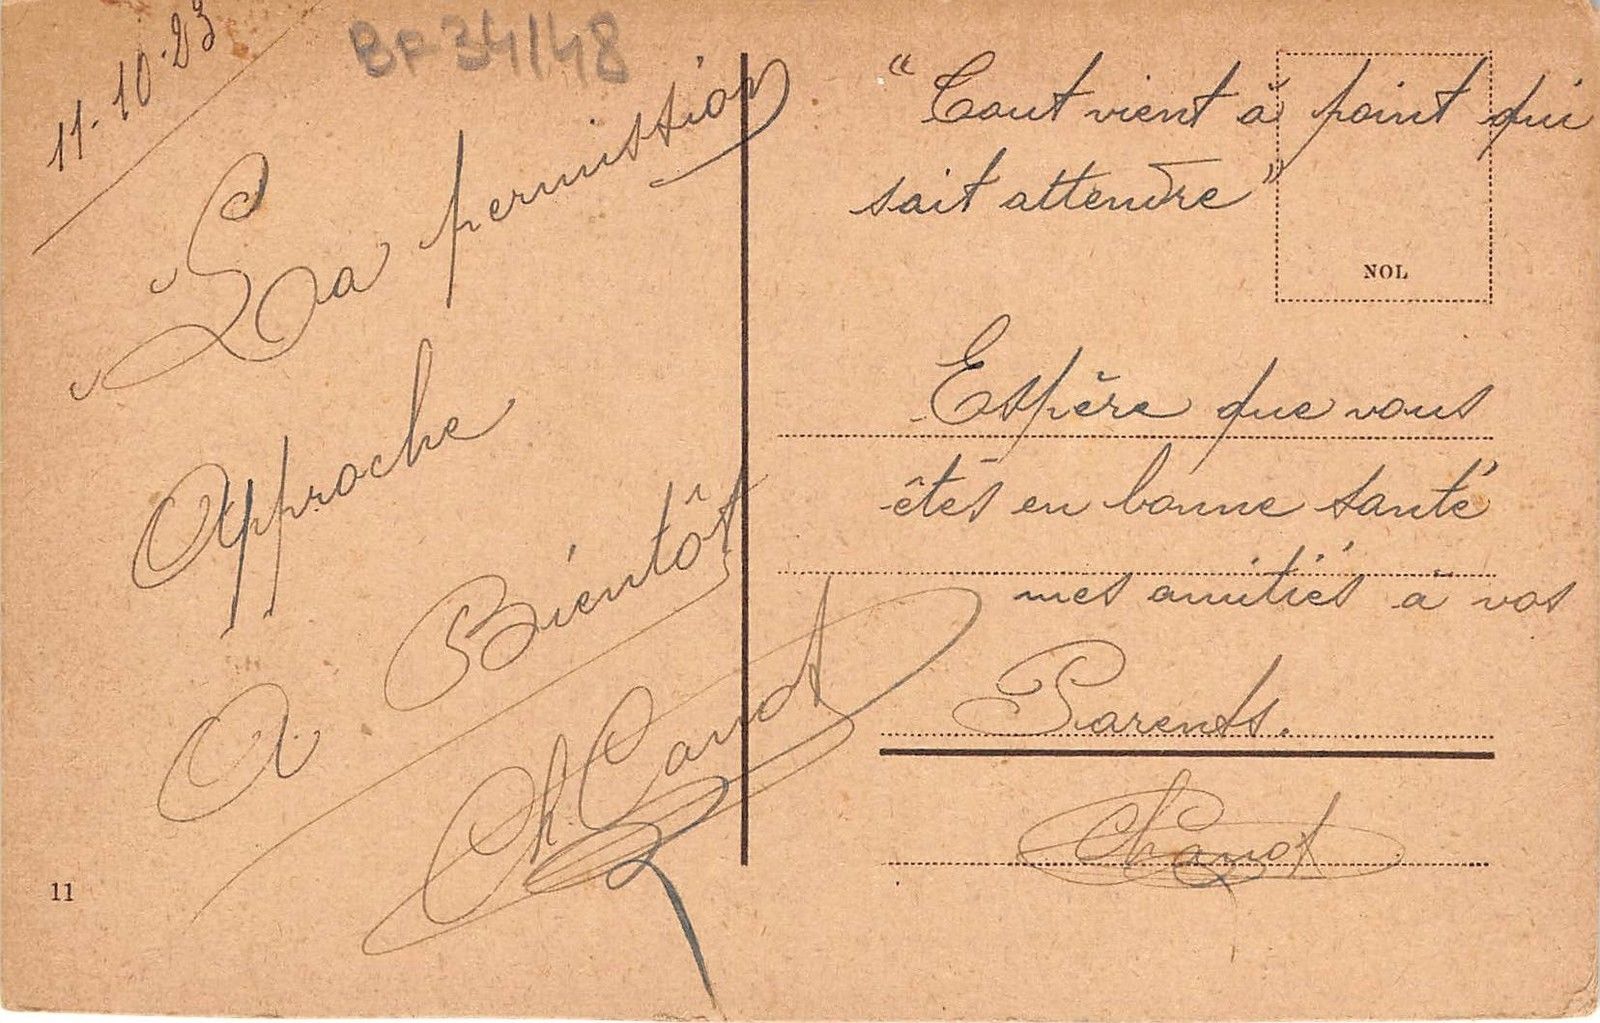 11-10-23
BF 34/48
La permission
Approche
A Bientôt
Ch Canot
11
"Tout vient à point qui
sait attendre"
NOL
Espère que vous
êtes en bonne santé
mes amitiés à vos
Parents.
Ch Canot